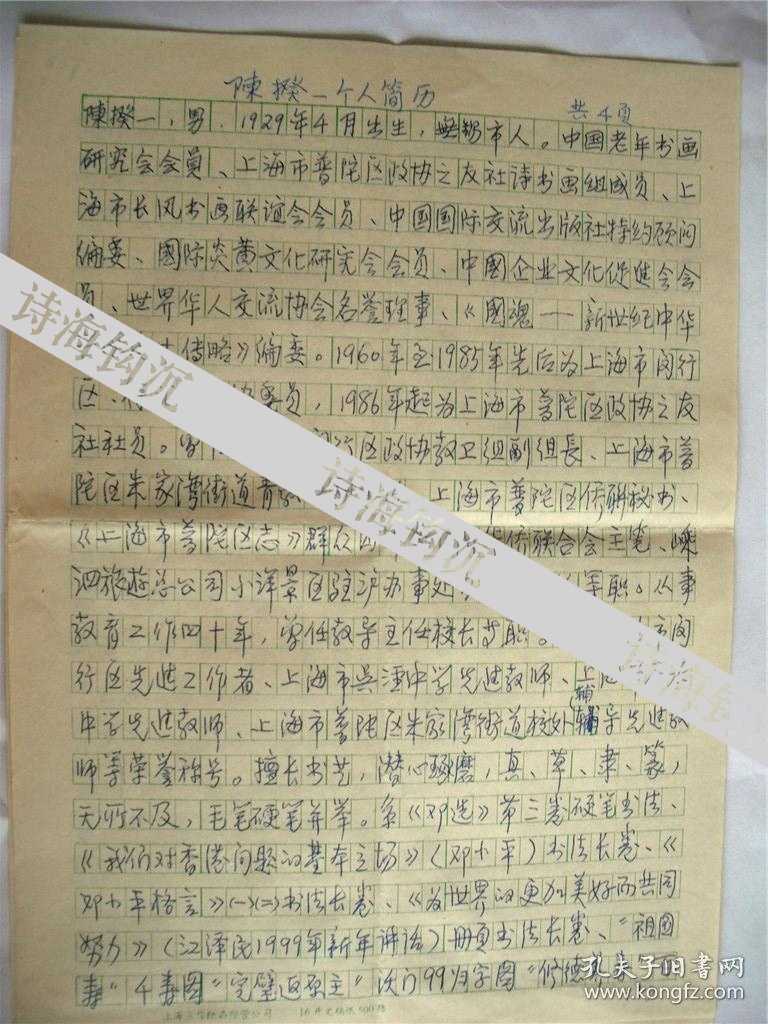 陳揆一个人简历
共4页
陳揆一，男．1929年4月出生，無锡市人。中国老年书画
研究会会員、上海市普陀区政协之友社诗书画组成员、上
海市长风书画联谊会会员、中国国际交流出版社特约顾问
编委、國际炎黄文化研究会会员、中國企业文化促進会会
员、世界华人交流协会名誉理事、《國魂——新世纪中华
传略》编委。1960年至1985年先后为上海市闵行
区、委员，1986年起为上海市普陀区政协之友
社社员。行区政协教卫组副组長、上海市普
陀区朱家湾街道青上海市普陀区侨联秘书、
《上海市普陀区志》群众侨联合会主笔、嵊
泗旅遊总公司小洋景区驻沪办事处等职。从事
教育工作四十年，曾任教导主任校长等职。市闵
行区先進工作者、上海市吳泾中学先進教师、上海
中学先進教师、上海市普陀区朱家湾街道校外辅导先進教
辅
师等荣誉称号。擅长书艺，潜心琢磨，真、草、隶、篆，
无所不及，毛笔硬笔并举。系《邓选》第三卷硬笔书法、
《我们对香港问题的基本立场》（邓小平）书法长卷、《
邓小平格言》㈠㈡书法长卷、《为世界的更加美好而共同
努力》（江泽民1999年新年讲话）册頁书法长卷、“祖国
寿”千寿图“完璧返原主”澳门99归字图
诗海钩沉
诗海钩沉
诗海钩沉
孔夫子旧书网
www.kongfz.com